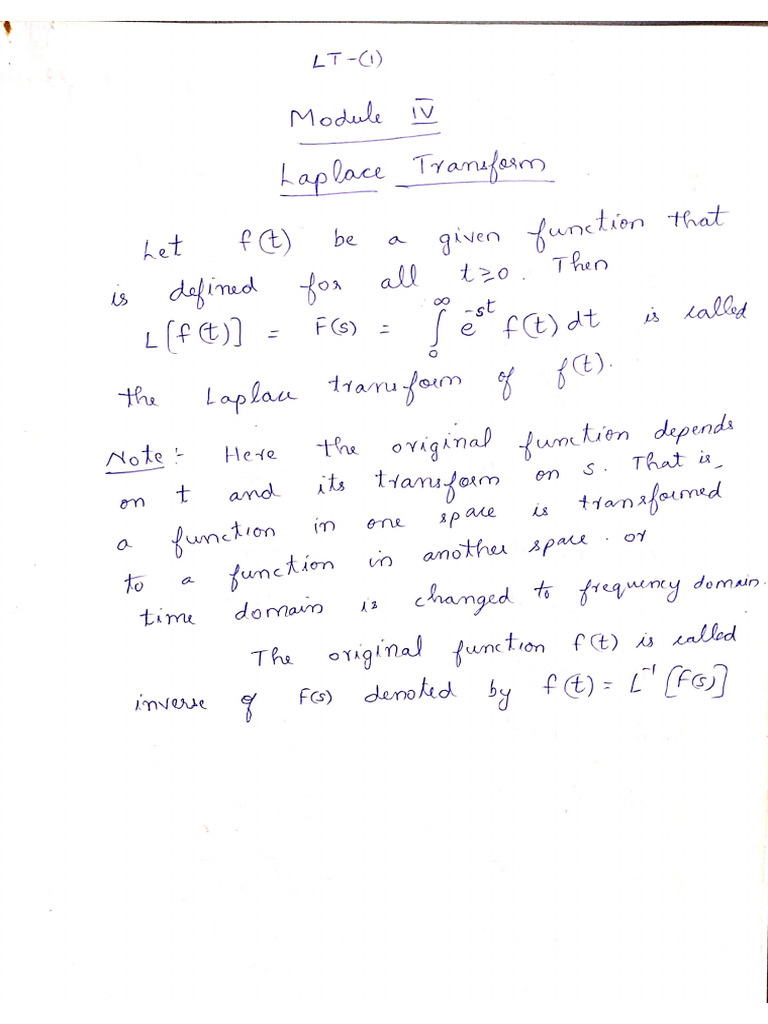 LT-(1)
Module IV
Laplace Transform
Let f(t) be a given function that
is defined for all t≥0. Then
L[f(t)] = F(s) = ∫₀^∞ e^{-st} f(t) dt is called
the Laplace transform of f(t).
Note:- Here the original function depends
on t and its transform on s. That is,
a function in one space is transformed
to a function in another space. or
time domain is changed to frequency domain.
The original function f(t) is called
inverse of F(s) denoted by f(t) = L⁻¹[F(s)]